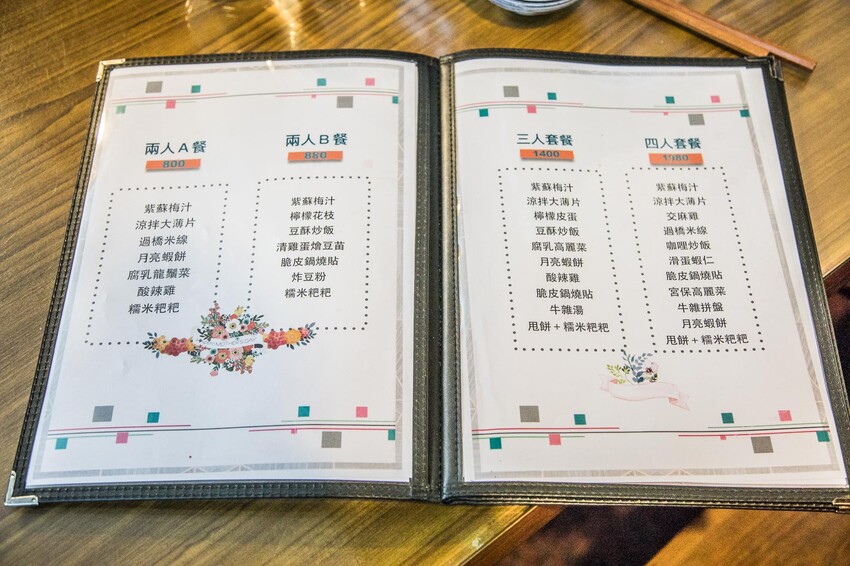 兩人A餐
800
紫蘇梅汁
涼拌大薄片
過橋米線
月亮蝦餅
腐乳龍鬚菜
酸辣雞
糯米粑粑
兩人B餐
880
紫蘇梅汁
檸檬花枝
豆酥炒飯
清雞蛋燴豆苗
脆皮鍋燒貼
炸豆粉
糯米粑粑
MOTHER'S DAY
三人套餐
1400
紫蘇梅汁
涼拌大薄片
檸檬皮蛋
豆酥炒飯
腐乳高麗菜
月亮蝦餅
酸辣雞
脆皮鍋燒貼
牛雜湯
甩餅+糯米粑粑
四人套餐
1980
紫蘇梅汁
涼拌大薄片
交麻雞
過橋米線
咖哩炒飯
滑蛋蝦仁
脆皮鍋燒貼
宮保高麗菜
牛雜拼盤
月亮蝦餅
甩餅+糯米粑粑